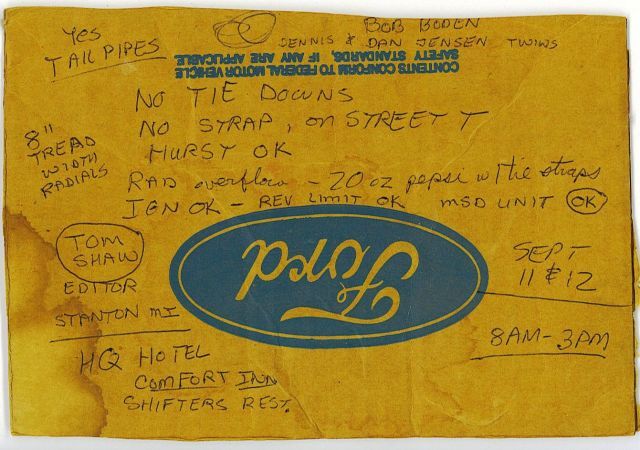 YES
TAIL PIPES
BOB BODEN
DENNIS & DAN JENSEN TWINS
CONTENTS CONFORM TO FEDERAL MOTOR VEHICLE
SAFETY STANDARDS, IF ANY ARE APPLICABLE
NO TIE DOWNS
NO STRAP, on STREET T
HURST OK
8" TREAD
WIDTH
RADIALS
RAD overflow - 20 oz pepsi w/tie straps
IGN OK - REV LIMIT OK MSD UNIT OK
TOM
SHAW
EDITOR
STANTON MI
Ford
SEPT
11 & 12
8AM - 3PM
HQ HOTEL
COMFORT INN
SHIFTERS REST.